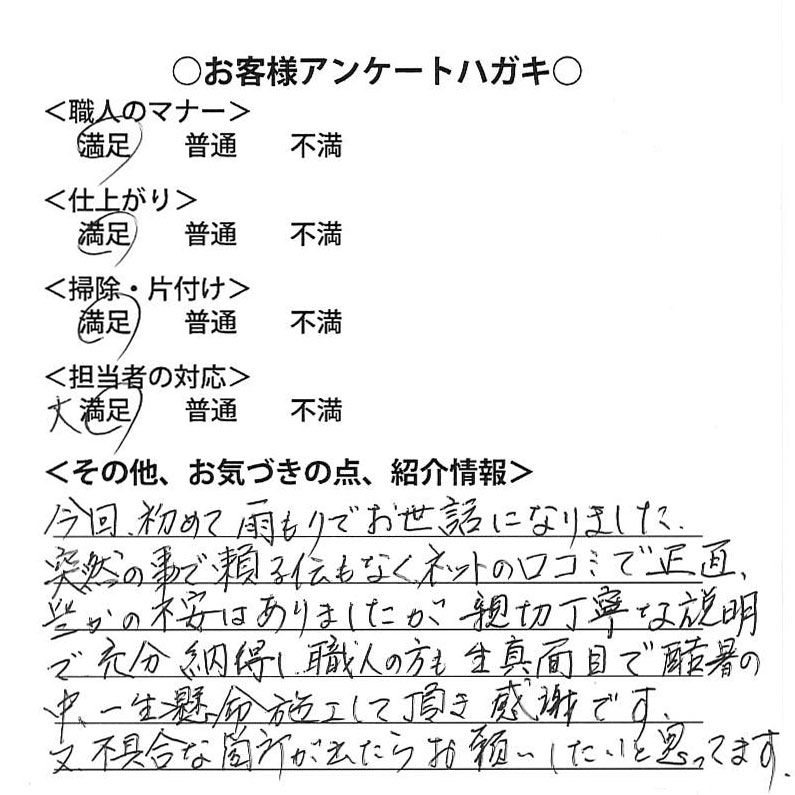 ○お客様アンケートハガキ○
＜職人のマナー＞
満足 普通 不満
＜仕上がり＞
満足 普通 不満
＜掃除・片付け＞
満足 普通 不満
＜担当者の対応＞
大満足 普通 不満
＜その他、お気づきの点、紹介情報＞
今回、初めて雨もりでお世話になりました、
突然の事で頼る伝もなく、ネットの口コミで正直、
些かの不安はありましたが、親切丁寧な説明
で充分納得し職人の方も生真面目で酷暑の
中、一生懸命施工して頂き感謝です、
又、不具合な箇所が出たらお願いしたいと思ってます.